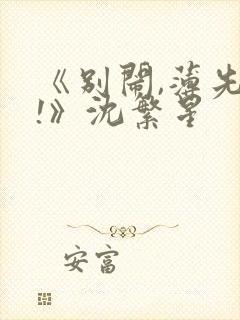 《别闹,薄先
!》沈繁星
安富